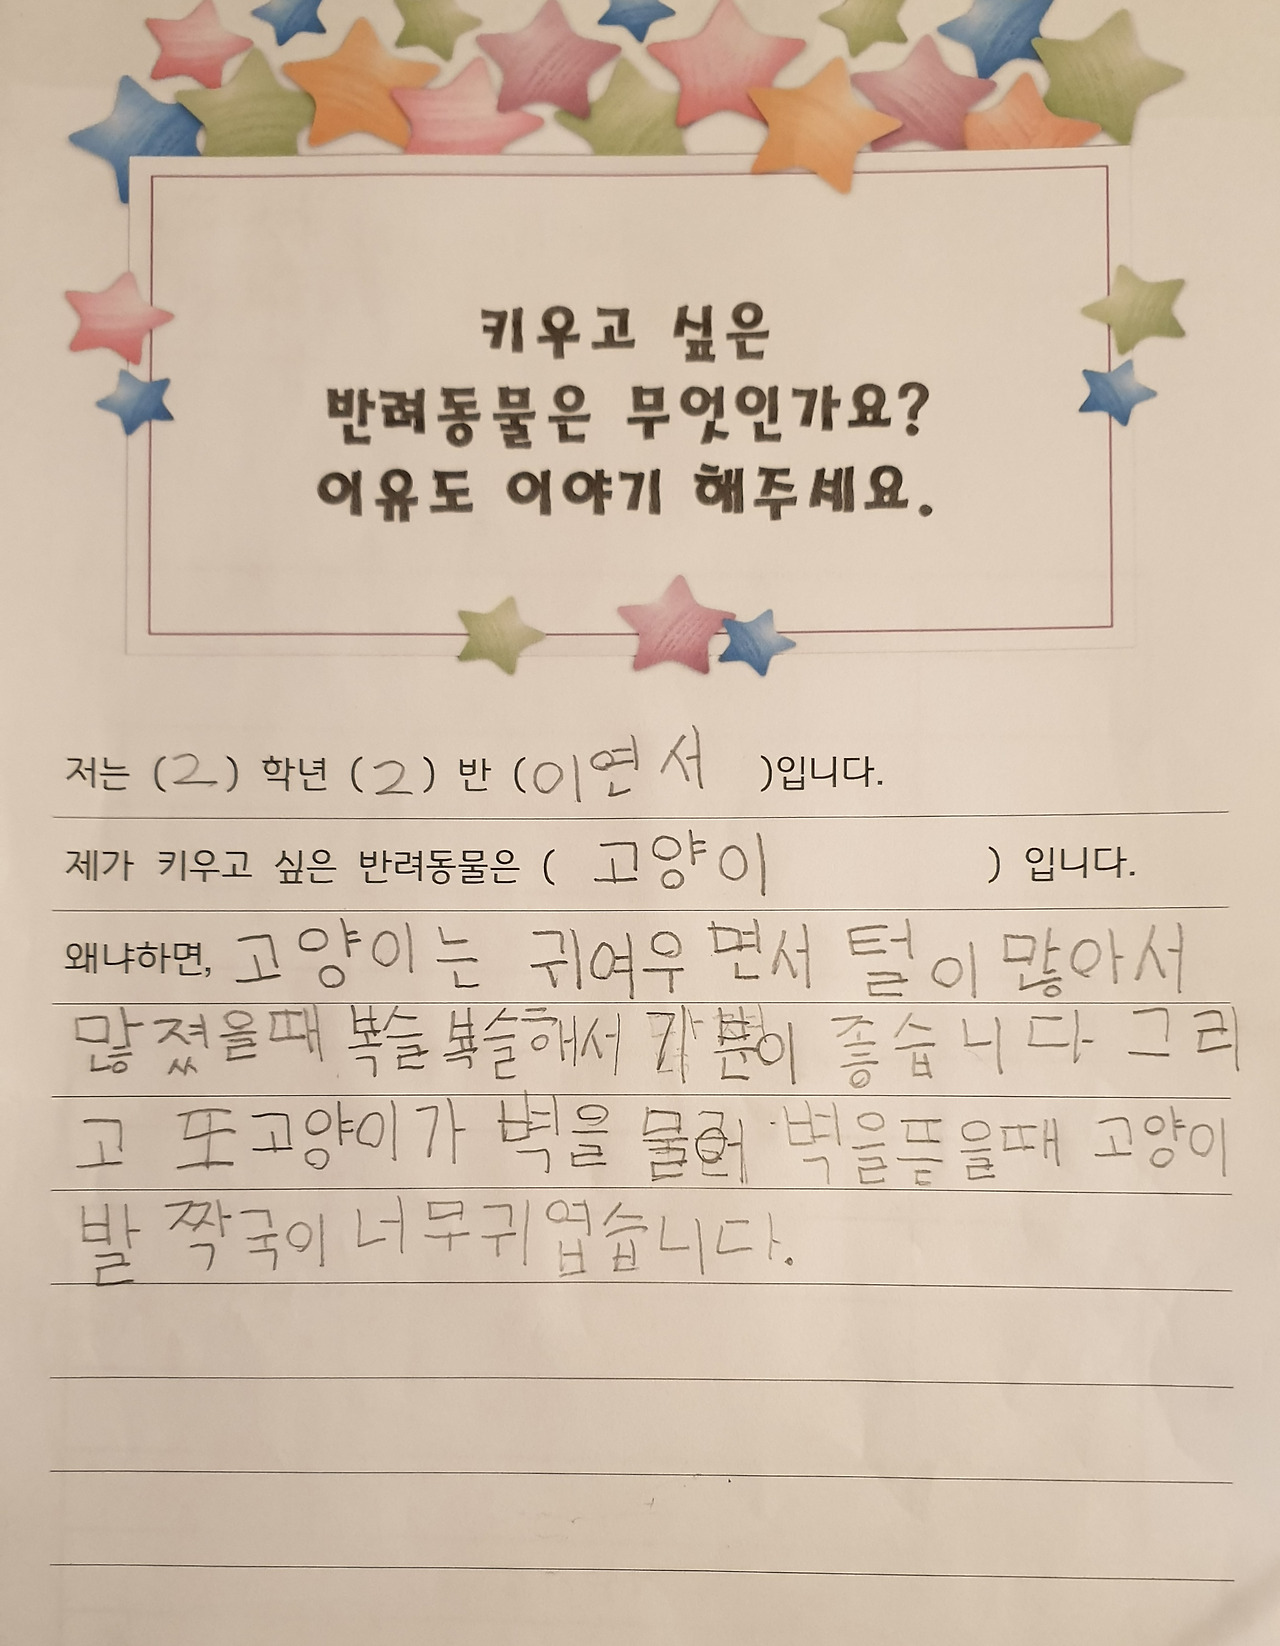 키우고 싶은
반려동물은 무엇인가요?
이유도 이야기 해주세요.
저는 (2) 학년 (2) 반 (이연서 )입니다.
제가 키우고 싶은 반려동물은 ( 고양이 ) 입니다.
왜냐하면, 고양이는 귀여우면서 털이 많아서
많졌을때 복슬복슬해서 이 좋습니다 그리
고 또고양이가 벽을 벽을뜯을때 고양이
발 짝국이 너무귀엽습니다.